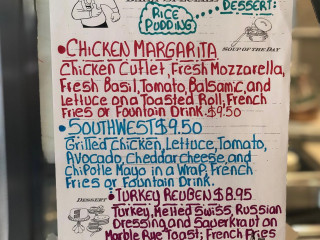 DESSERT:
RICE
PUDDING
SOUP OF THE DAY
•CHICKEN MARGARITA
Chicken Cutlet, Fresh Mozzarella,
Fresh Basil, Tomato, Balsamic, and
Lettuce on a Toasted Roll, French
Fries or Fountain Drink. $9.50
•SOUTHWEST $9.50
Grilled Chicken, Lettuce, Tomato,
Avocado, Cheddar cheese, and
Chipotle Mayo in a Wrap, French
Fries or Fountain Drink.
DESSERT
•TURKEY REUBEN $8.95
Turkey, Melted Swiss, Russian
Dressing and Sauerkraut on
Marble Rye Toast; French Fries